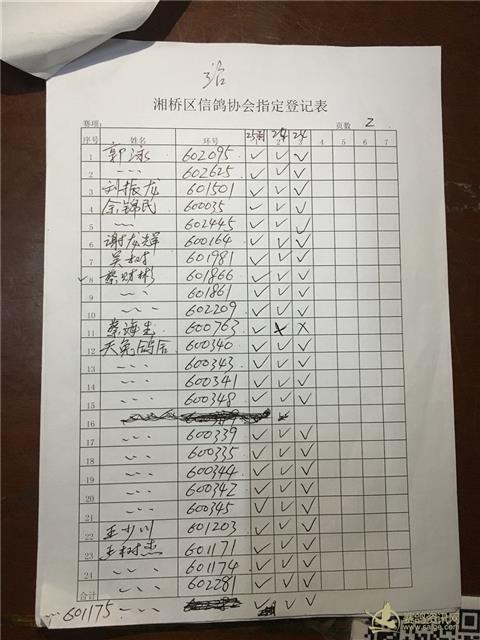 湘桥区信鸽协会指定登记表
赛项: 页数 2
序号 姓名 环号 25羽 2羽 2羽 4 5 6 7
1 郭泳 602095 ✓ ✓ ✓
2 〃 602625 ✓ ✓ ✓
3 刘振龙 601501 ✓ ✓ ✓
4 余锦民 600035 ✓ ✓ ✓
5 〃 602445 ✓ ✓ ✓
6 谢龙辉 600164 ✓ ✓ ✓
7 吴树 601981 ✓ ✓ ✓
✓ 8 蔡财彬 601866 ✓ ✓ ✓
9 〃 601861 ✓ ✓ ✓
10 〃 602209 ✓ ✓ ✓
11 蔡海生 600763 ✓ ✗ ✗
12 天兔鸽舍 600340 ✓ ✓ ✓
13 〃 600343 ✓ ✓ ✓
14 〃 600341 ✓ ✓ ✓
15 〃 600348 ✓ ✓ ✓
16
17 〃 600339 ✓ ✓ ✓
18 〃 600335 ✓ ✓ ✓
19 〃 600344 ✓ ✓ ✓
20 〃 600342 ✓ ✓ ✓
21 〃 600345 ✓ ✓ ✓
22 王少川 601203 ✓ ✓ ✓
23 王树杰 601171 ✓ ✓ ✓
24 〃 601174 ✓ ✓ ✓
合计 〃 602281 ✓ ✓ ✓
601175 〃 ✓ ✓ ✓
赛鸽资讯网
www.saige.com